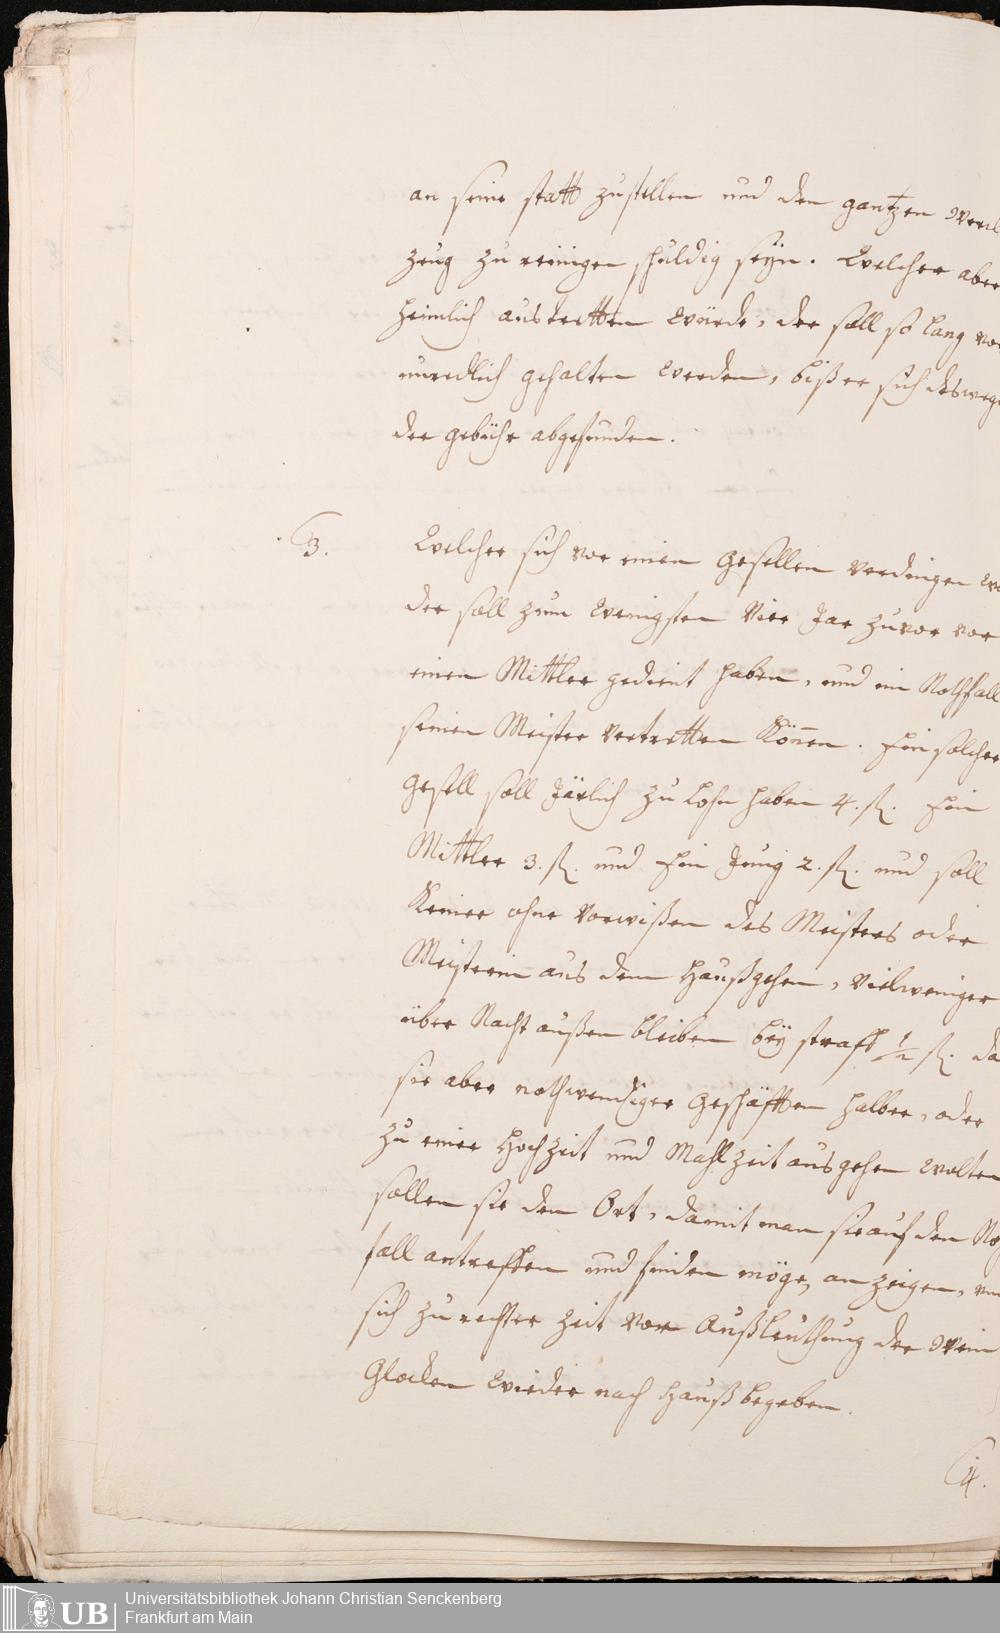 an seine statt zustellen und den gantzen Werck
zeug zu reinigen schuldig seyn. Welcher aber
heimlich austretten würde, der soll so lang vor
unredlich gehalten werden, biß er sich deswege
der gebühr abgefunden.
3. Welcher sich vor einen Gesellen verdingen
der soll zum wenigsten Vier Jar zuvor vor
einen Mittler gedient haben, und im Nothfall
seinen Meister Vertretten können. Ein solcher
Gesell soll Järlich zu Lohn haben 4. fl. Ein
Mittler 3. fl. und Ein Jung 2. fl. und soll
Keiner ohne Vorwißen des Meisters oder
Meisterin aus dem Haußgehen, Vielweniger
über Nacht außen bleiben bey straff ½ fl. da
sie aber nothwendiger Geschäfften halber, oder
zu einer Hochzeit und Mahlzeit ausgehen wolten
sollen sie den Ort, damit man sie auf den No
fall antreffen und finden möge, anzeigen, un
sich zu rechter Zeit vor Außleuthung der Wein
Glocken wieder nach Hauß begeben.
4.
Universitätsbibliothek Johann Christian Senckenberg
UB Frankfurt am Main